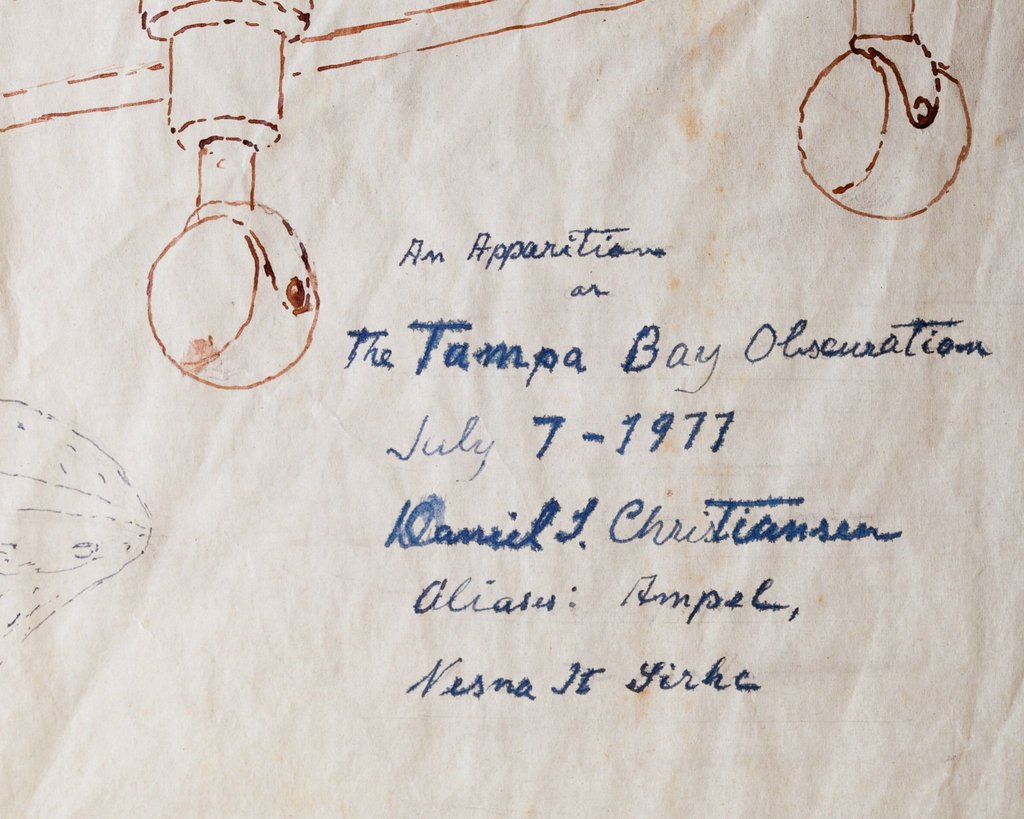 An Apparition
or
The Tampa Bay Obscuration
July 7-1977
Daniel S. Christiansen
Aliases: Ampel,
Nesna It Sirhc